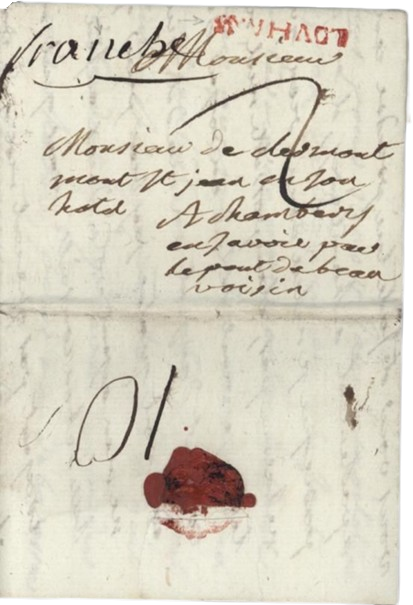 franche
Monsieur
Monsieur de clermont
mont st jean en son
hotel A chambery
en savoie par
le pont de beau
voisin